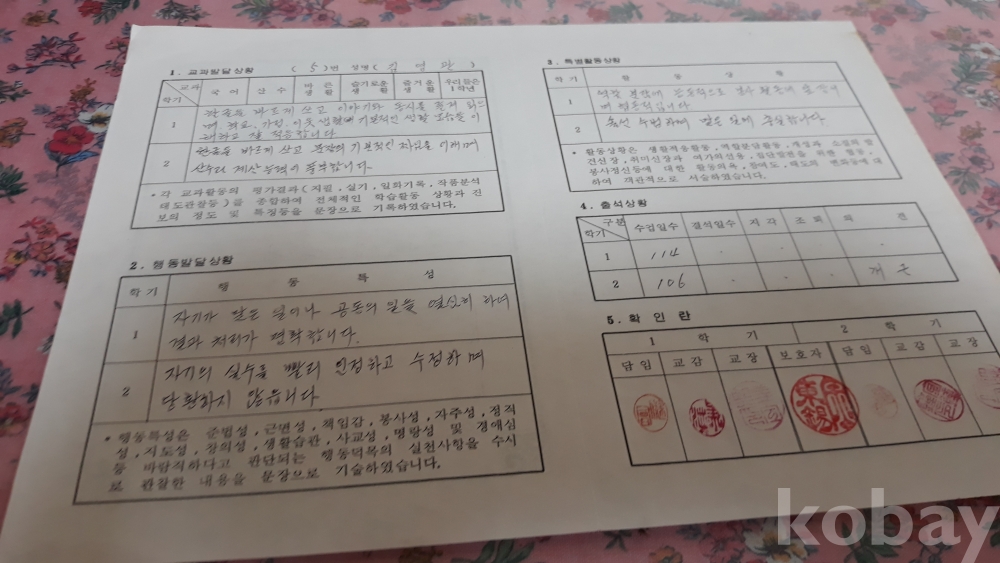 1. 교과발달상황
(5)번 성명(김영관)
교과
학기
국어
산수
바른생활
슬기로운생활
즐거운생활
우리들은1학년
1
한글을 바르게 쓰고 이야기와 동시를
며 학교, 가정, 이웃생활에 기본적인 생활 모습을 이
해하고 잘 적응합니다.
2
한글을 바르게 쓰고 문장의 기본적인
산수의 계산 능력이 풍부합니다.
• 각 교과활동의 평가결과(지필, 실기, 일화기록, 작품분석
태도관찰등)를 종합하여 전체적인 학습활동 상황과 진
보의 정도 및 특징등을 문장으로 기록하였습니다.
2. 행동발달상황
학기
행동특성
1
자기가 맡은 일이나 공동의 일을 열심히 하며
결과 처리가 명확합니다.
2
자기의 실수를 빨리 인정하고 수정하며
당황하지 않습니다.
• 행동특성은 준법성, 근면성, 책임감, 봉사성, 자주성, 정직
성, 지도성, 창의성, 생활습관, 사교성, 명랑성 및 경애심
등 바람직하다고 판단되는 행동덕목의 실천사항을 수시
로 관찰한 내용을 문장으로 기술하였습니다.
3. 특별활동상황
학기
활동상황
1
2
• 활동상황은 생활적응활동, 역할분담활동, 개성과 소질의 발
견신장, 취미신장과 여가의선용, 집단발전을 위한 협동,
봉사정신등에 대한 활동의욕, 참여도, 태도의 변화등에 대
하여 객관적으로 서술하였습니다.
4. 출석상황
구분
학기
수업일수
결석일수
지각
조퇴
의견
1
114
2
106
개근
5. 확인란
1학기
2학기
담임
교감
교장
보호자
담임
교감
교장
kobay